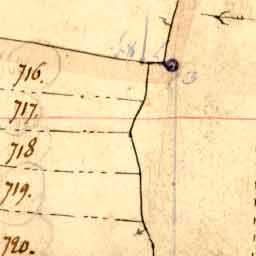 716.
717.
718
719.
720.